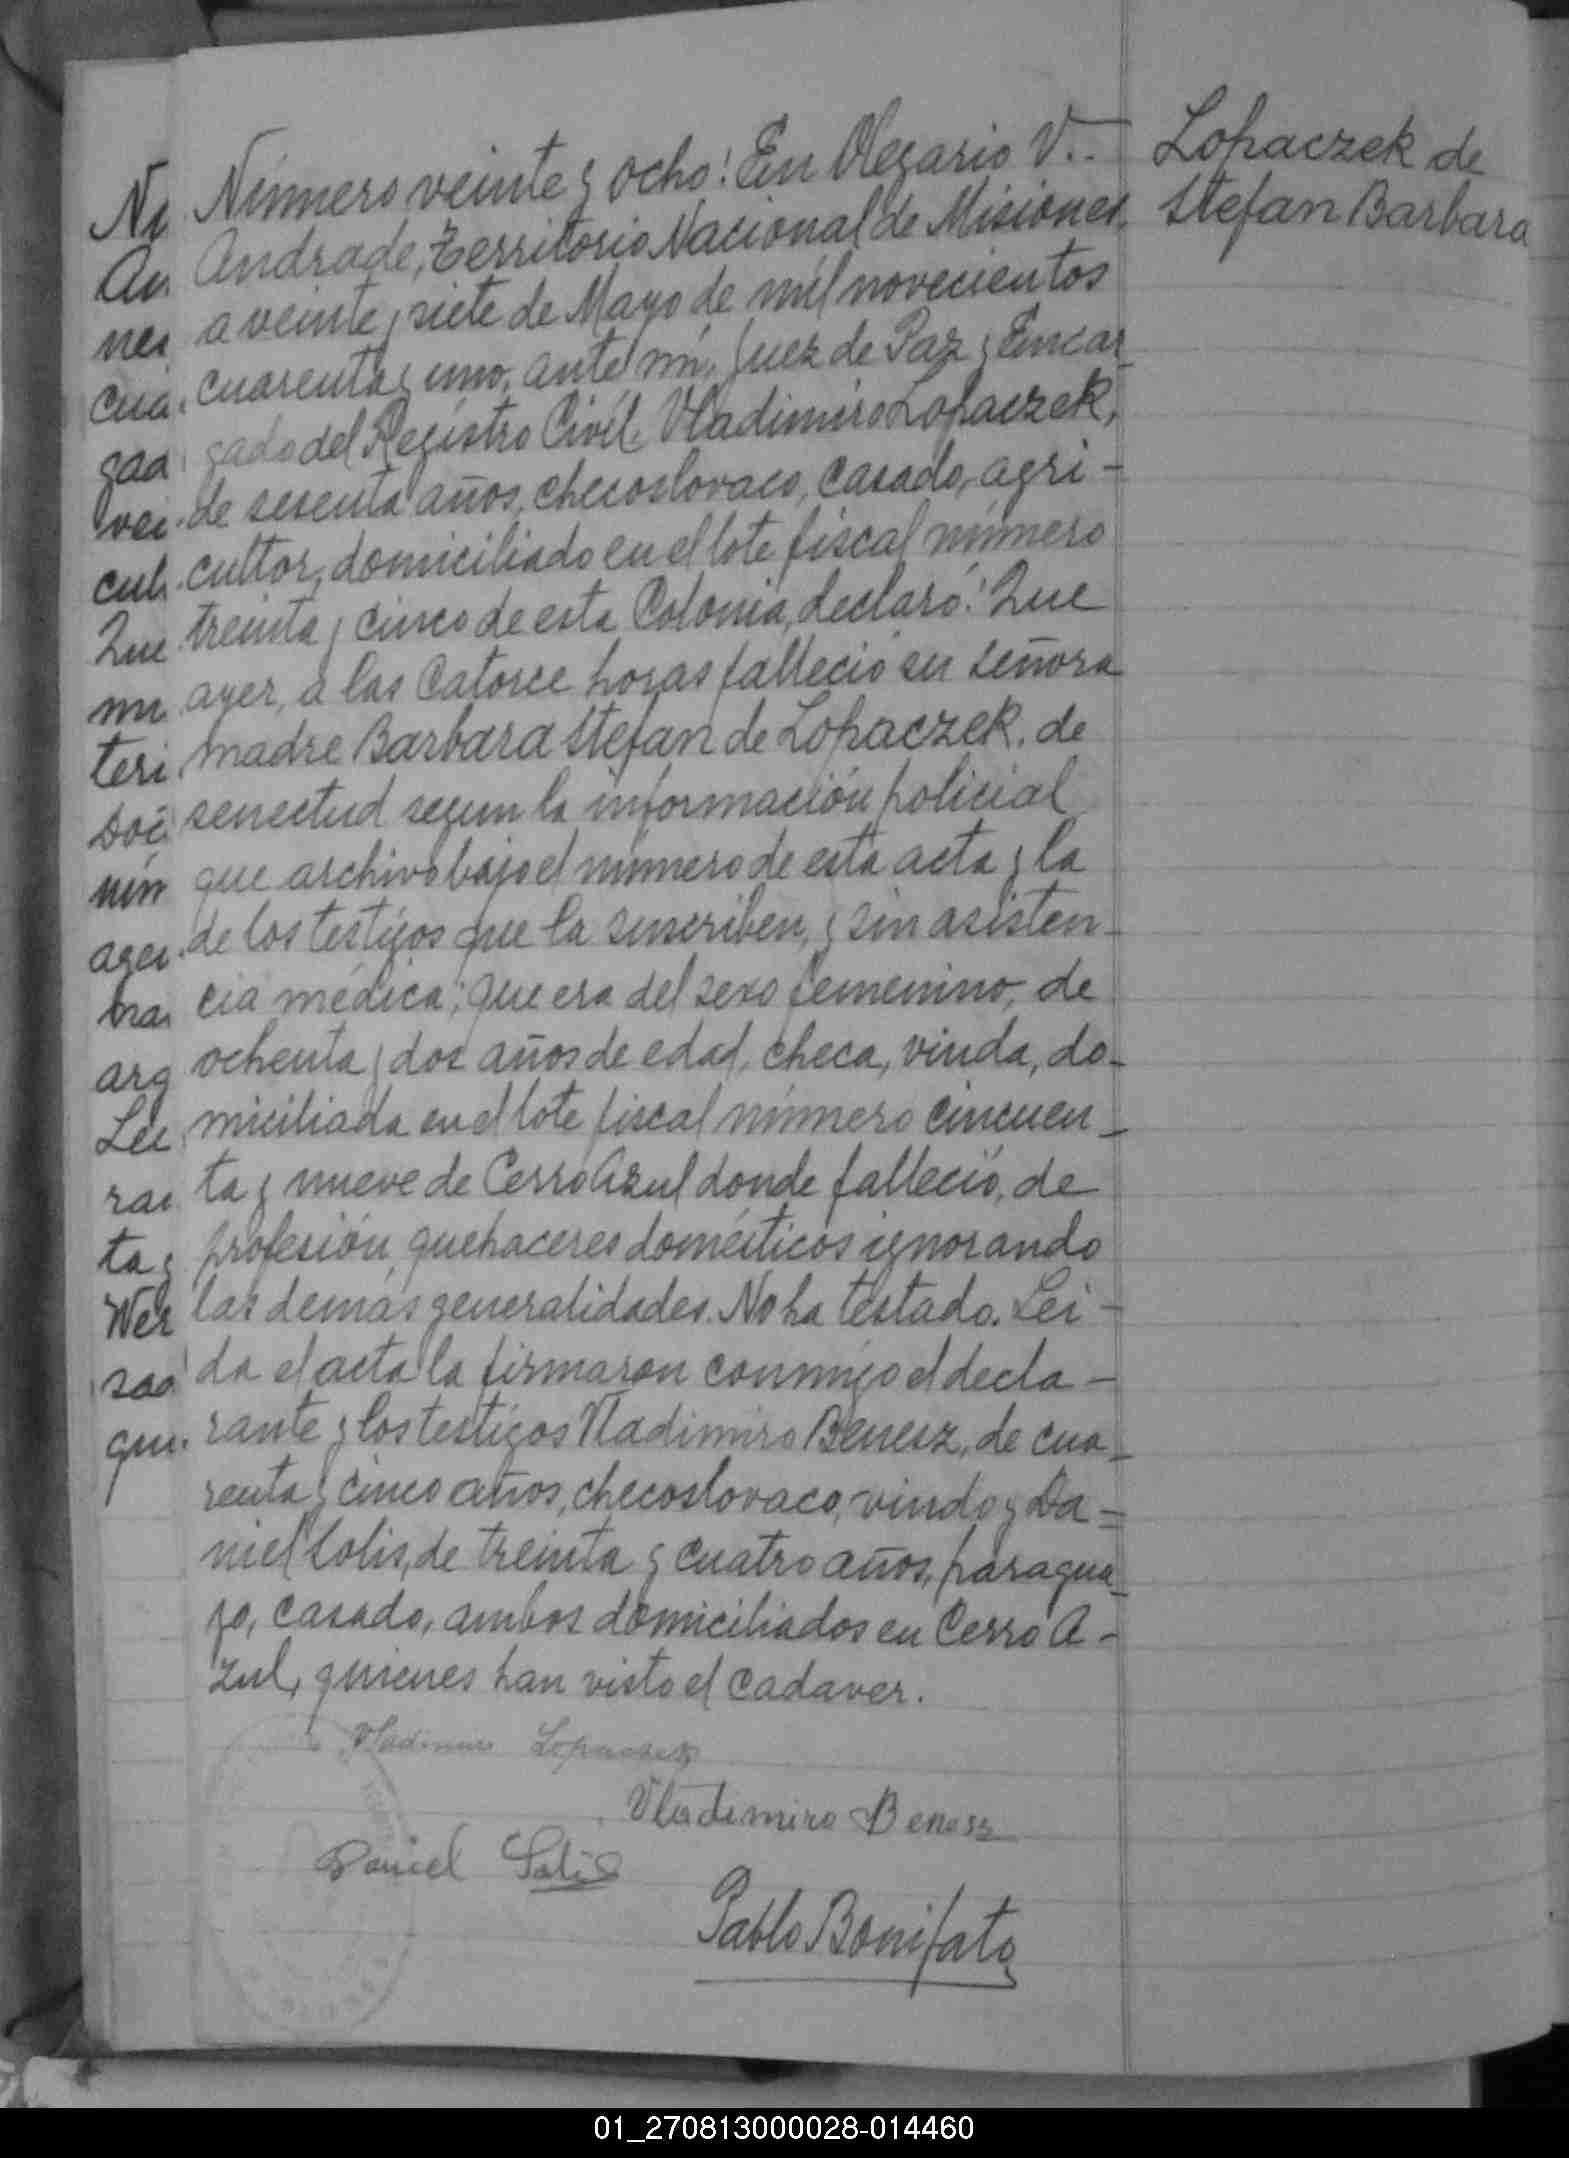 Lopaczek de
Stefan Barbara
Número veinte y ocho: En Olegario V..
Andrade, Territorio Nacional de Misiones,
a veinte y siete de Mayo de mil novecientos
cuarenta y uno, ante mí, Juez de Paz y Encar
gado del Registro Civil, Vladimiro Lopaczek,
de sesenta años, checoslovaco, casado, agri-
cultor, domiciliado en el lote fiscal número
treinta y cinco de esta Colonia, declaró: Que
ayer, a las catorce horas falleció su señora
madre Barbara Stefan de Lopaczek, de
senectud segun la información policial
que archivo bajo el número de esta acta y la
de los testigos que la suscriben, y sin asisten-
cia médica; que era del sexo femenino, de
ochenta y dos años de edad, checa, viuda, do-
miciliada en el lote fiscal número cincuen-
ta y nueve de Cerro Azul donde falleció, de
profesión, quehaceres domésticos ignorando
las demás generalidades. No ha testado. Lei-
da el acta la firmaron conmigo el decla-
rante y los testigos Vladimiro Benesz, de cua-
renta y cinco años, checoslovaco, viudo y Da=
niel Solis, de treinta y cuatro años, paragua-
yo, casado, ambos domiciliados en Cerro A-
zul, quienes han visto el cadaver.
Vladimiro Lopaczek
Vladimiro Benesz
Daniel Solis
Pablo Bonifato
01_270813000028-014460